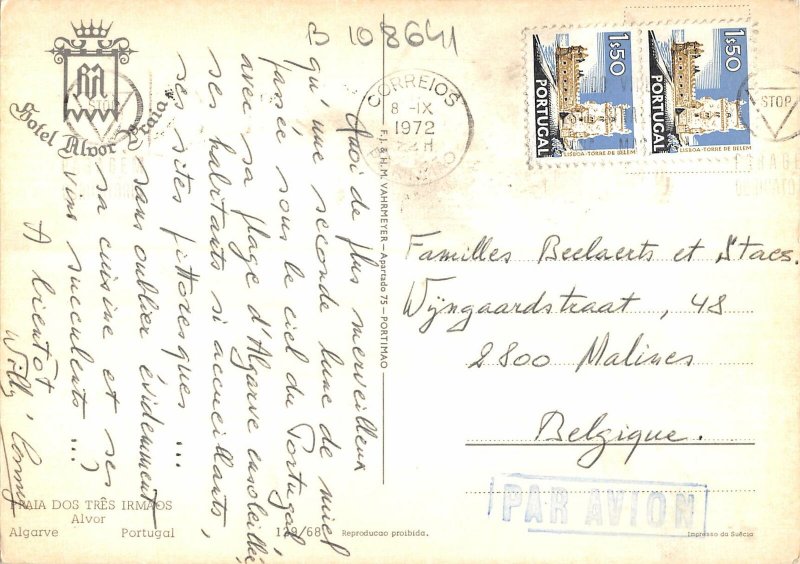 RA
Hotel Alvor Praia
B 108641
Quoi de plus merveilleux
qu'une seconde lune de miel
passée sous le ciel du Portugal,
avec sa plage d'Algarve ensoleillée,
ses habitants si accueillants,
ses sites pittoresques ...
sans oublier évidemment
sa cuisine et ses
vins succulents ...?
A bientôt
Willy
PRAIA DOS TRÊS IRMÃOS
Alvor
Algarve Portugal
129/68 Reproducao proibida.
F.J. & H.M. VAHRMEYER - Apartado 75 - PORTIMAO
CORREIOS
8-IX
1972
1$50
PORTUGAL
LISBOA-TORRE DE BELEM
1$50
PORTUGAL
LISBOA-TORRE DE BELEM
STOP
STOP
Familles Beelaerts et Staes.
Wijngaardstraat, 48
2800 Malines
Belgique.
PAR AVION
Impresso da Suécia